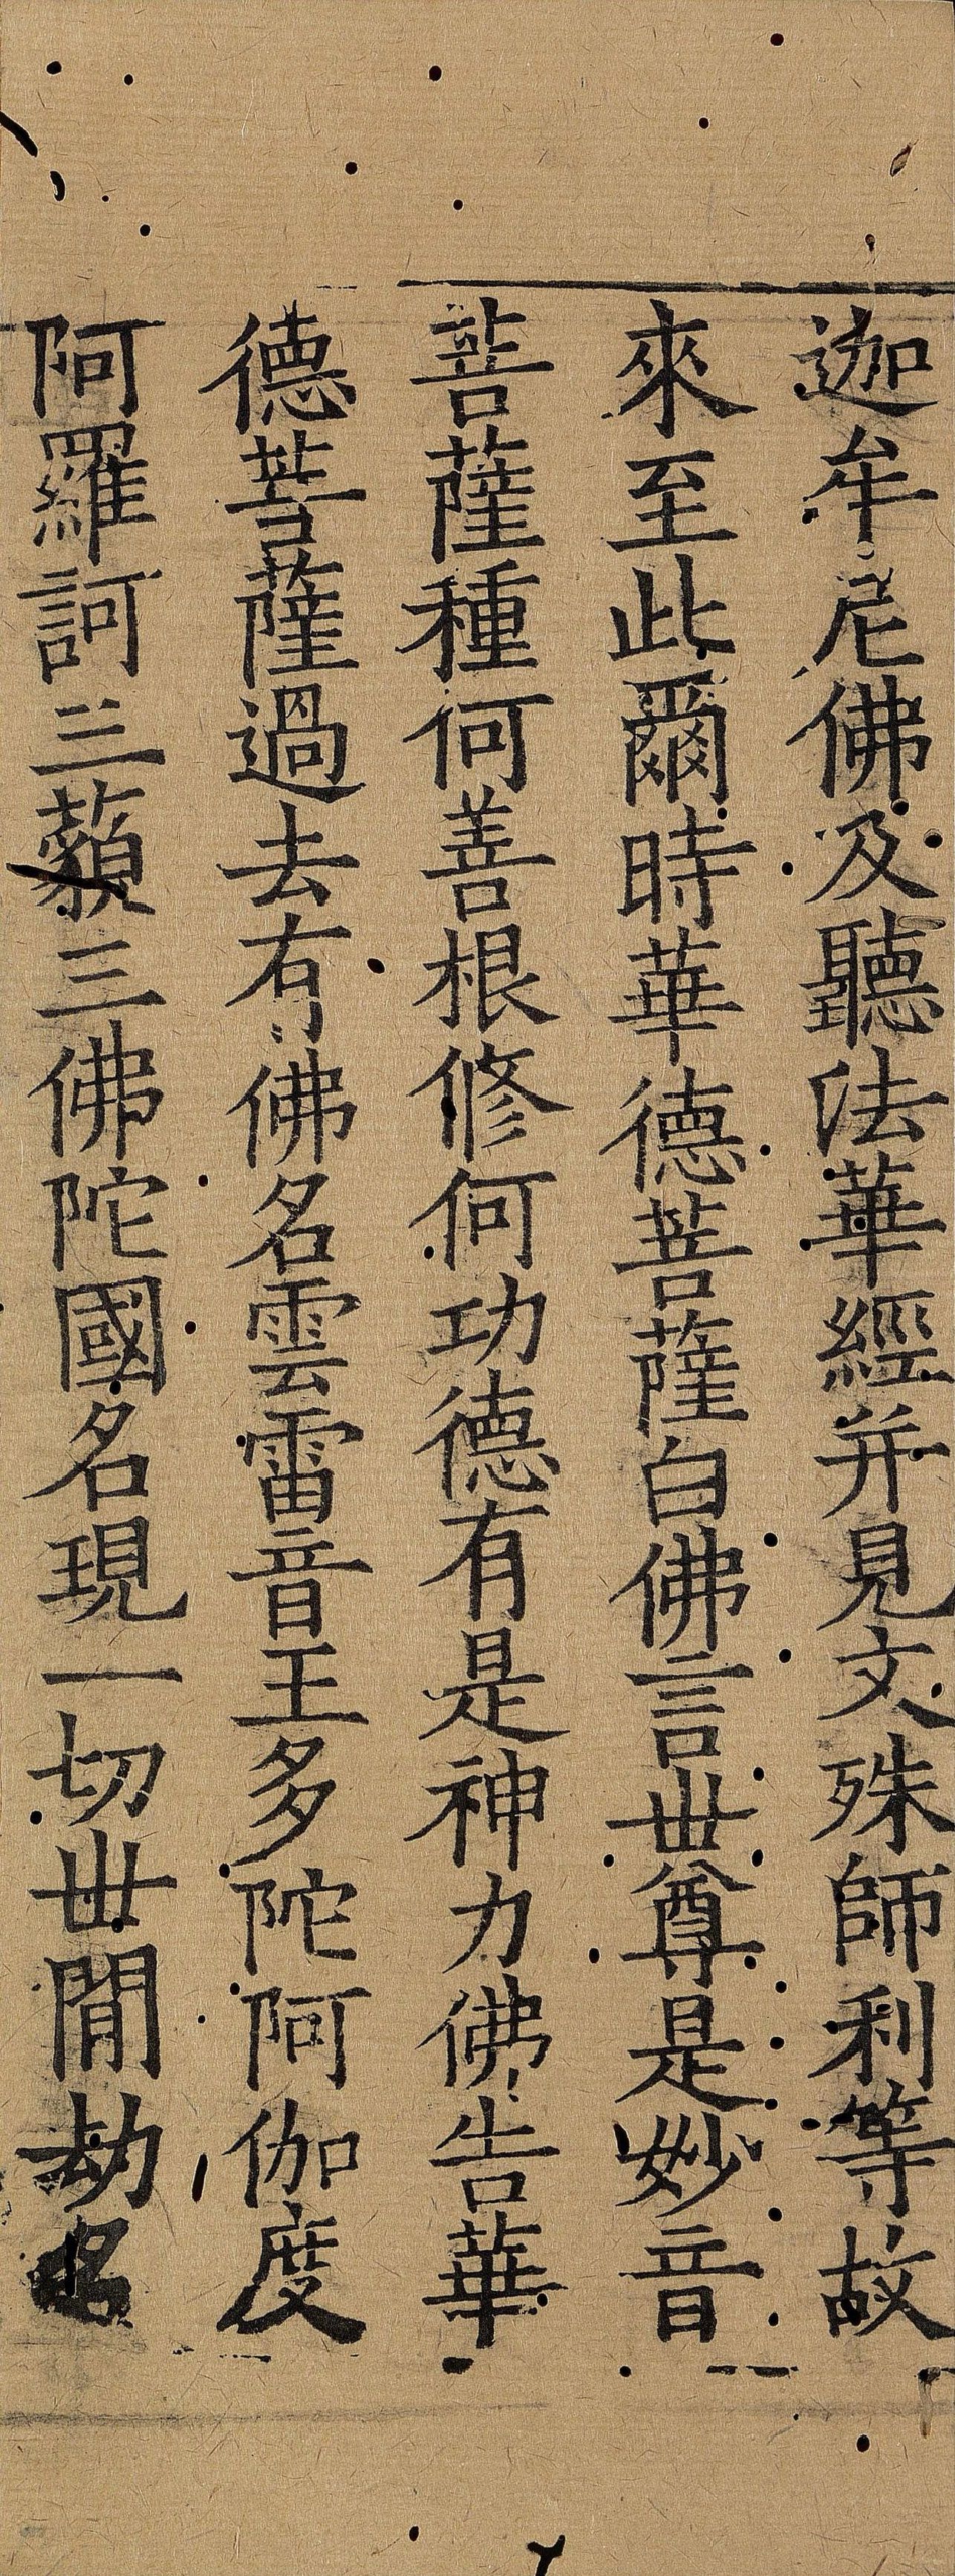 迦牟尼佛及聽法華經并見文殊師利等故
來至此爾時華德菩薩白佛言世尊是妙音
菩薩種何善根修何功德有是神力佛告華
德菩薩過去有佛名雲雷音王多陀阿伽度
阿羅訶三藐三佛陀國名現一切世閒劫名